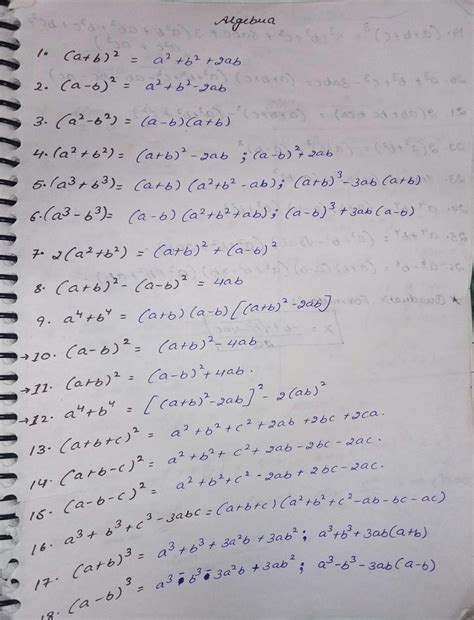 Algebra
1. (a+b)² = a²+b²+2ab
2. (a-b)² = a²+b²-2ab
3. (a²-b²) = (a-b)(a+b)
4. (a²+b²) = (a+b)²-2ab ; (a-b)²+2ab
5. (a³+b³) = (a+b) (a²+b²-ab); (a+b)³-3ab(a+b)
6. (a³-b³) = (a-b) (a²+b²+ab); (a-b)³+3ab(a-b)
7. 2(a²+b²) = (a+b)²+(a-b)²
8. (a+b)²-(a-b)² = 4ab
9. a⁴+b⁴ = (a+b)(a-b)[(a+b)²-2ab]
→10. (a-b)² = (a+b)²-4ab
→11. (a+b)² = (a-b)²+4ab.
→12. a⁴+b⁴ = [(a+b)²-2ab]²-2(ab)²
13. (a+b+c)² = a²+b²+c²+2ab+2bc+2ca.
14. (a+b-c)² = a²+b²+c²+2ab-2bc-2ac.
15. (a-b-c)² = a²+b²+c²-2ab+2bc-2ac.
16. a³+b³+c³-3abc = (a+b+c)(a²+b²+c²-ab-bc-ac)
17. (a+b)³ = a³+b³+3a²b+3ab²; a³+b³+3ab(a+b)
18. (a-b)³ = a³-b³-3a²b+3ab²; a³-b³-3ab(a-b)